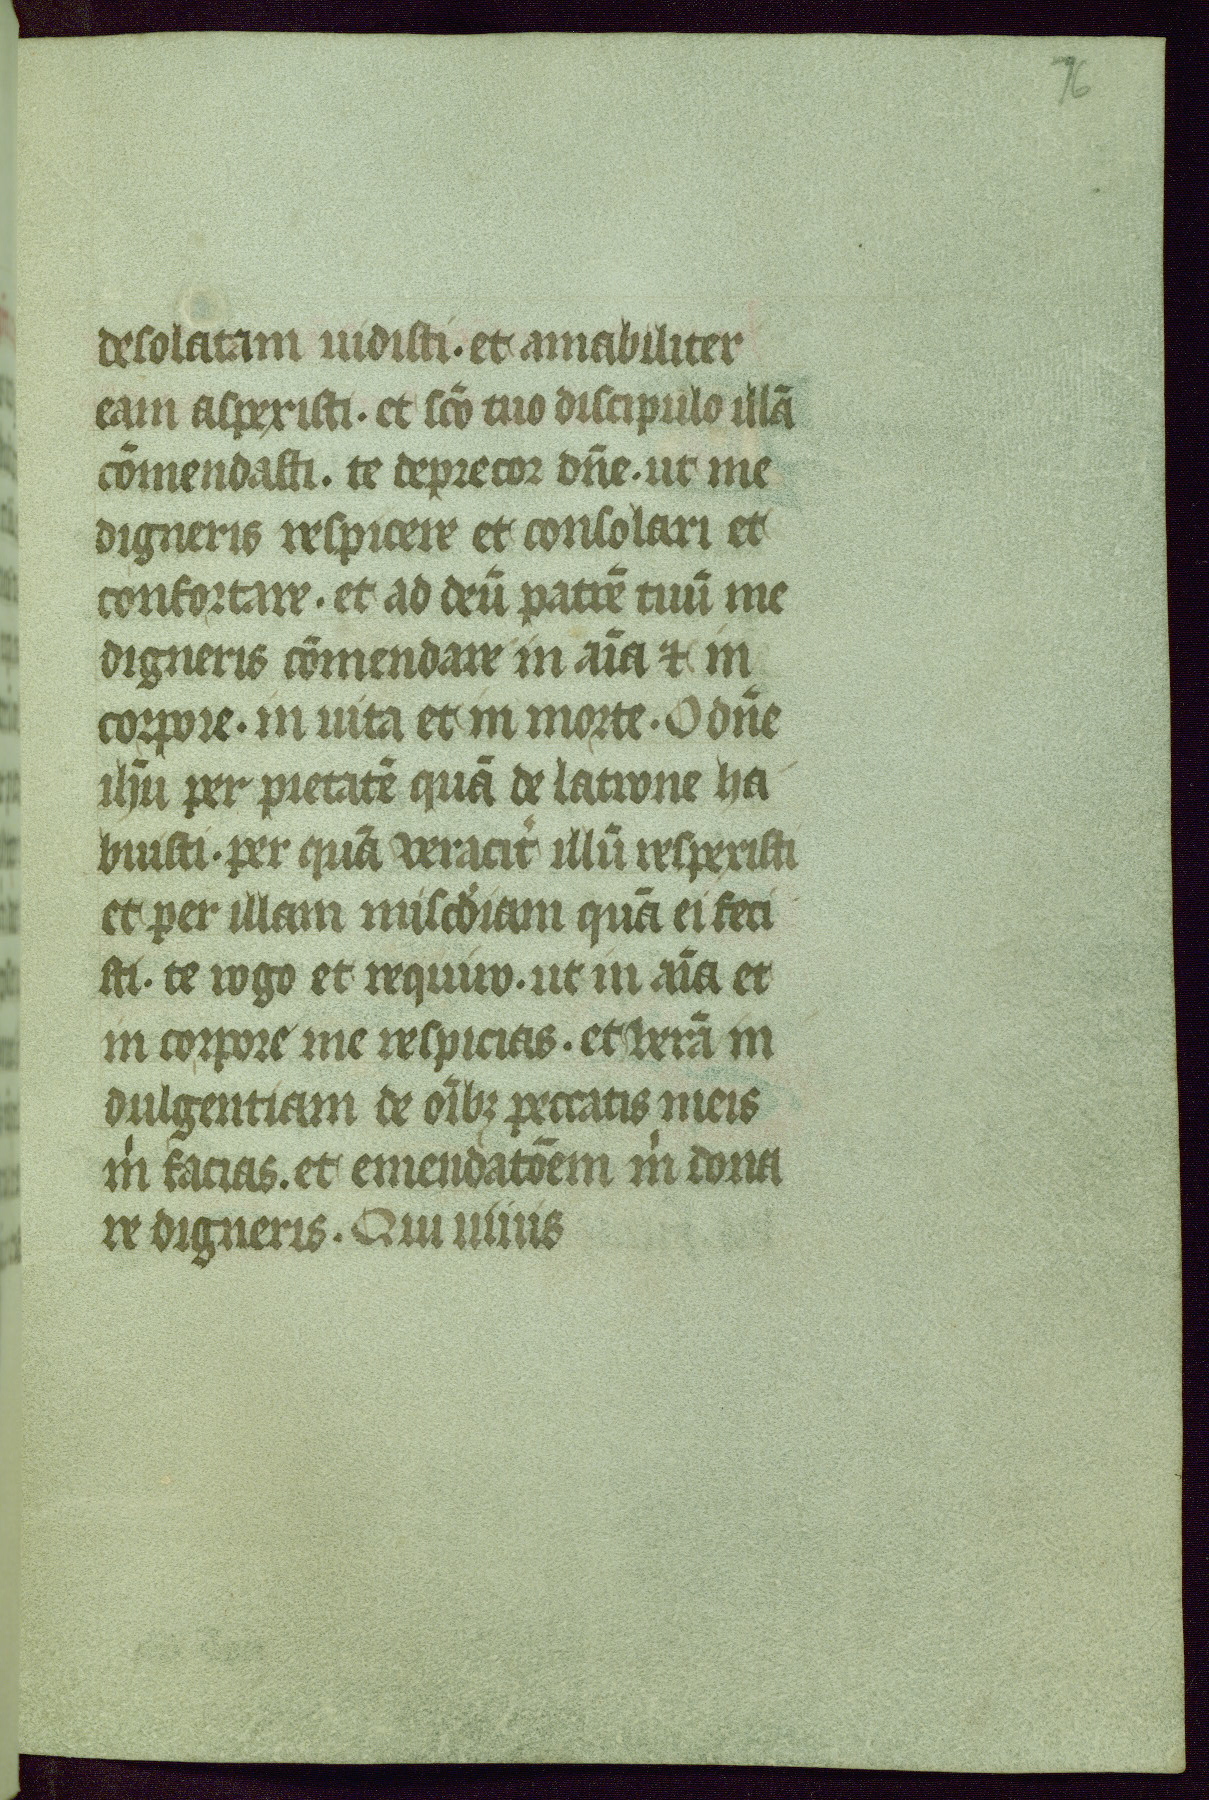 76
desolatam uidisti. et amabiliter
eam aspexisti. et sc̄o tuo discipulo illā
cōmendasti. te deprecor dn̄e. ut me
digneris respicere et consolari et
confortare. et ad deū patrē tuū me
digneris cōmendare in aīa ⁊ in
corpore. in uita et in morte. O dn̄e
ihū per pietatē quā de latrone ha
buisti. per quā veracit̉ illū respexisti
et per illam misc̉diam quā ei feci
sti. te rogo et requiro. ut in aīa et
in corpore me respicias. et verā in
dulgentiam de oībꝫ peccatis meis
m̉ facias. et emendatōem m̉ dona
re digneris. Qui uiuis